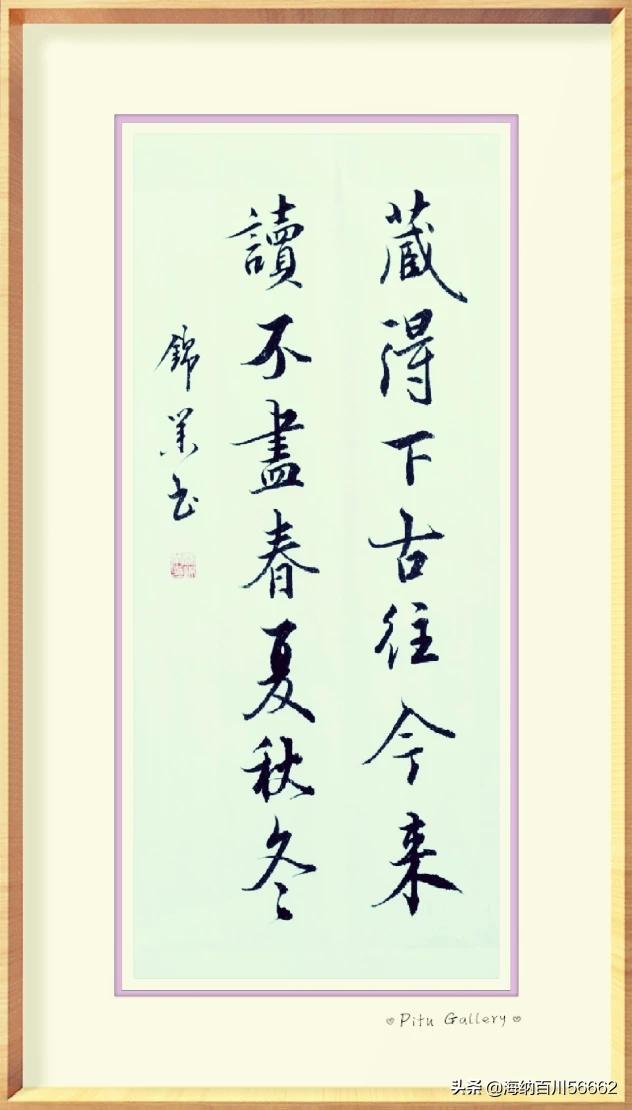 藏得下古往今来
讀不盡春夏秋冬
錦業书
Pitu Gallery
头条 @海纳百川56662